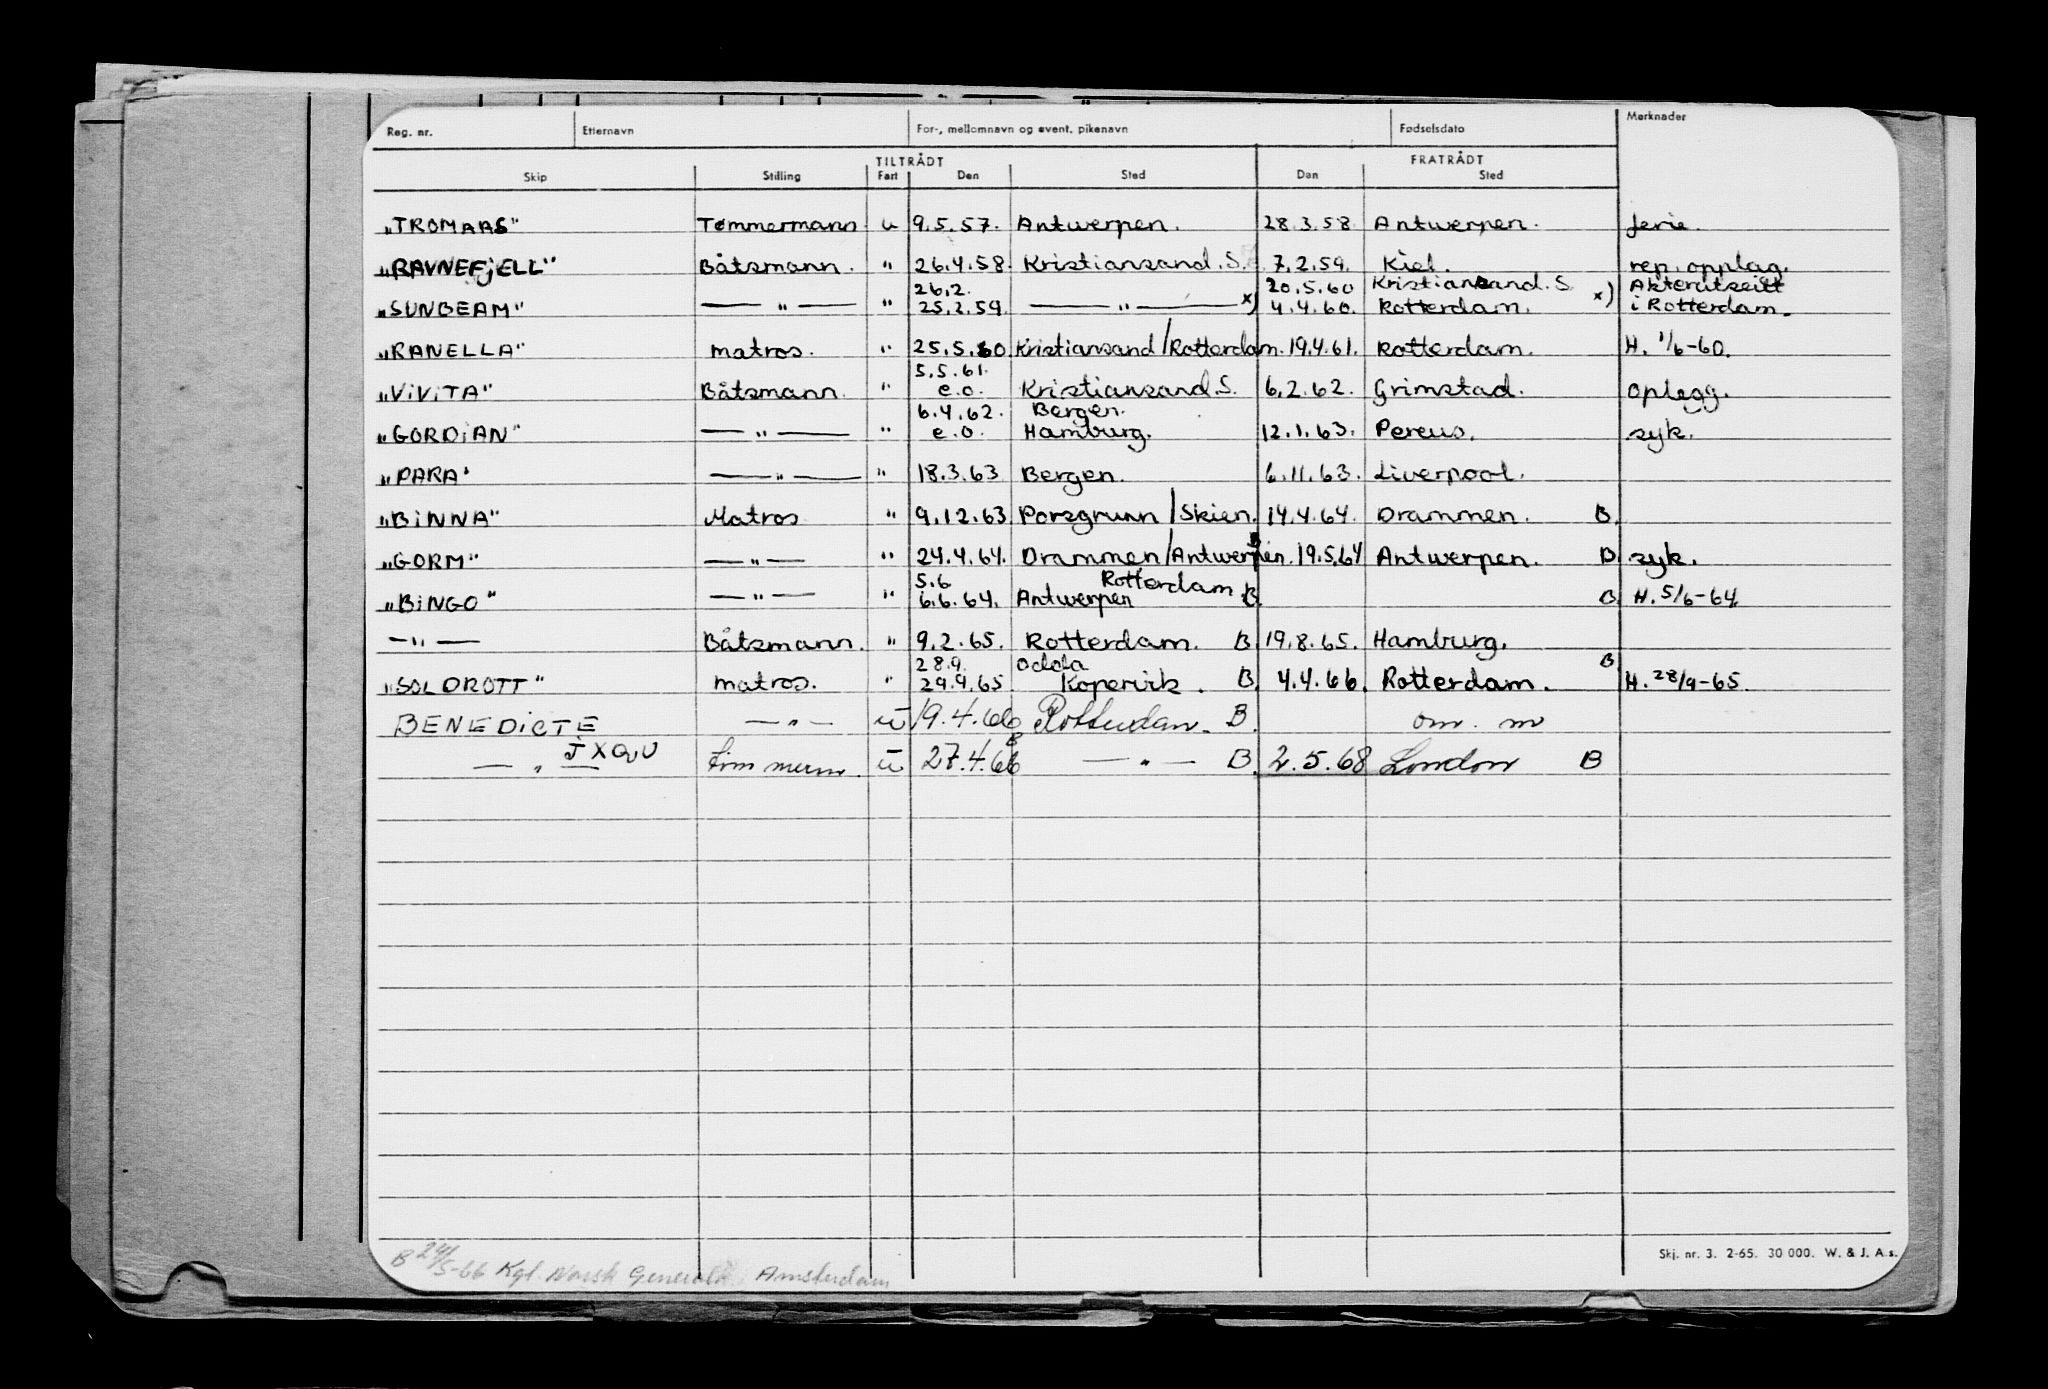 Reg. nr. Etternavn For-, mellomnavn og event. pikenavn Fødselsdato Merknader
TILTRÅDT FRATRÅDT
Skip Stilling Fart Den Sted Den Sted
"TROMAAS" Tømmermann u 9.5.57. Antwerpen. 28.3.58. Antwerpen. ferie.
"RAVNEFJELL" Båtsmann. " 26.4.58. Kristiansand. S. 7.2.59. Kiel. rep. opplag.
26.2. 20.5.60 Kristiansand. S. Akterutseilt
"SUNBEAM" — " — " 25.2.59. — " — x) 4.4.60. Rotterdam. x) i Rotterdam.
"RANELLA" matros. " 25.5.60. Kristiansand/Rotterdam. 19.4.61. Rotterdam. H. 1/6-60.
5.5.61.
"VIVITA" Båtsmann. " e.o. Kristiansand. S. 6.2.62. Grimstad. Oplegg.
6.4.62. Bergen.
"GORDIAN" — " — " e.o. Hamburg. 12.1.63. Pereus. syk.
"PARA" — " — " 18.3.63 Bergen. 6.11.63. Liverpool.
"BINNA" Matros " 9.12.63. Porsgrunn/Skien. 14.4.64. Drammen. B.
"GORM" — " — " 24.4.64. Drammen/Antwerpen. B 19.5.64 Antwerpen. B syk.
5.6 Rotterdam
"BINGO" — " — " 6.6.64. Antwerpen B. B. H. 5/6-64.
— " — Båtsmann. " 9.2.65. Rotterdam. B 19.8.65. Hamburg.
28.9. Odda B
"SOLDROTT" matros. " 29.9.65. Kopervik. B. 4.4.66. Rotterdam. H. 28/9-65.
BENEDICTE — " — u 19.4.66 Rotterdam. B. om. m
JXQU B
— " — tømmerm. u 27.4.66 — " — B. 2.5.68 London B
Skj. nr. 3. 2-65. 30 000. W. & J. A.s.
B 24/5-66 Kgl. Norsk Generalk. Amsterdam